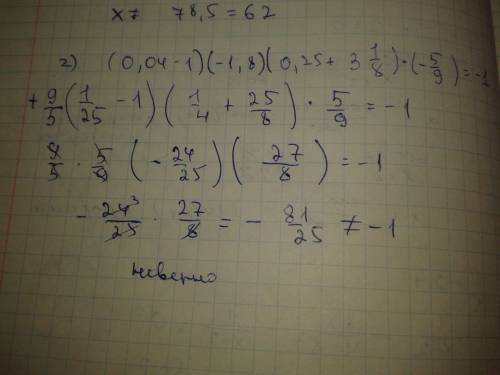 x7 78,5 = 62
2) (0,04 - 1)(-1,8)(0,25 + 3 1/8)·(-5/9) = -1
+ 9/5 (1/25 - 1)(1/4 + 25/8) · 5/9 = -1
9/5 · 5/9 (-24/25)(27/8) = -1
- 24³/25 · 27/8 = - 81/25 ≠ -1
неверно